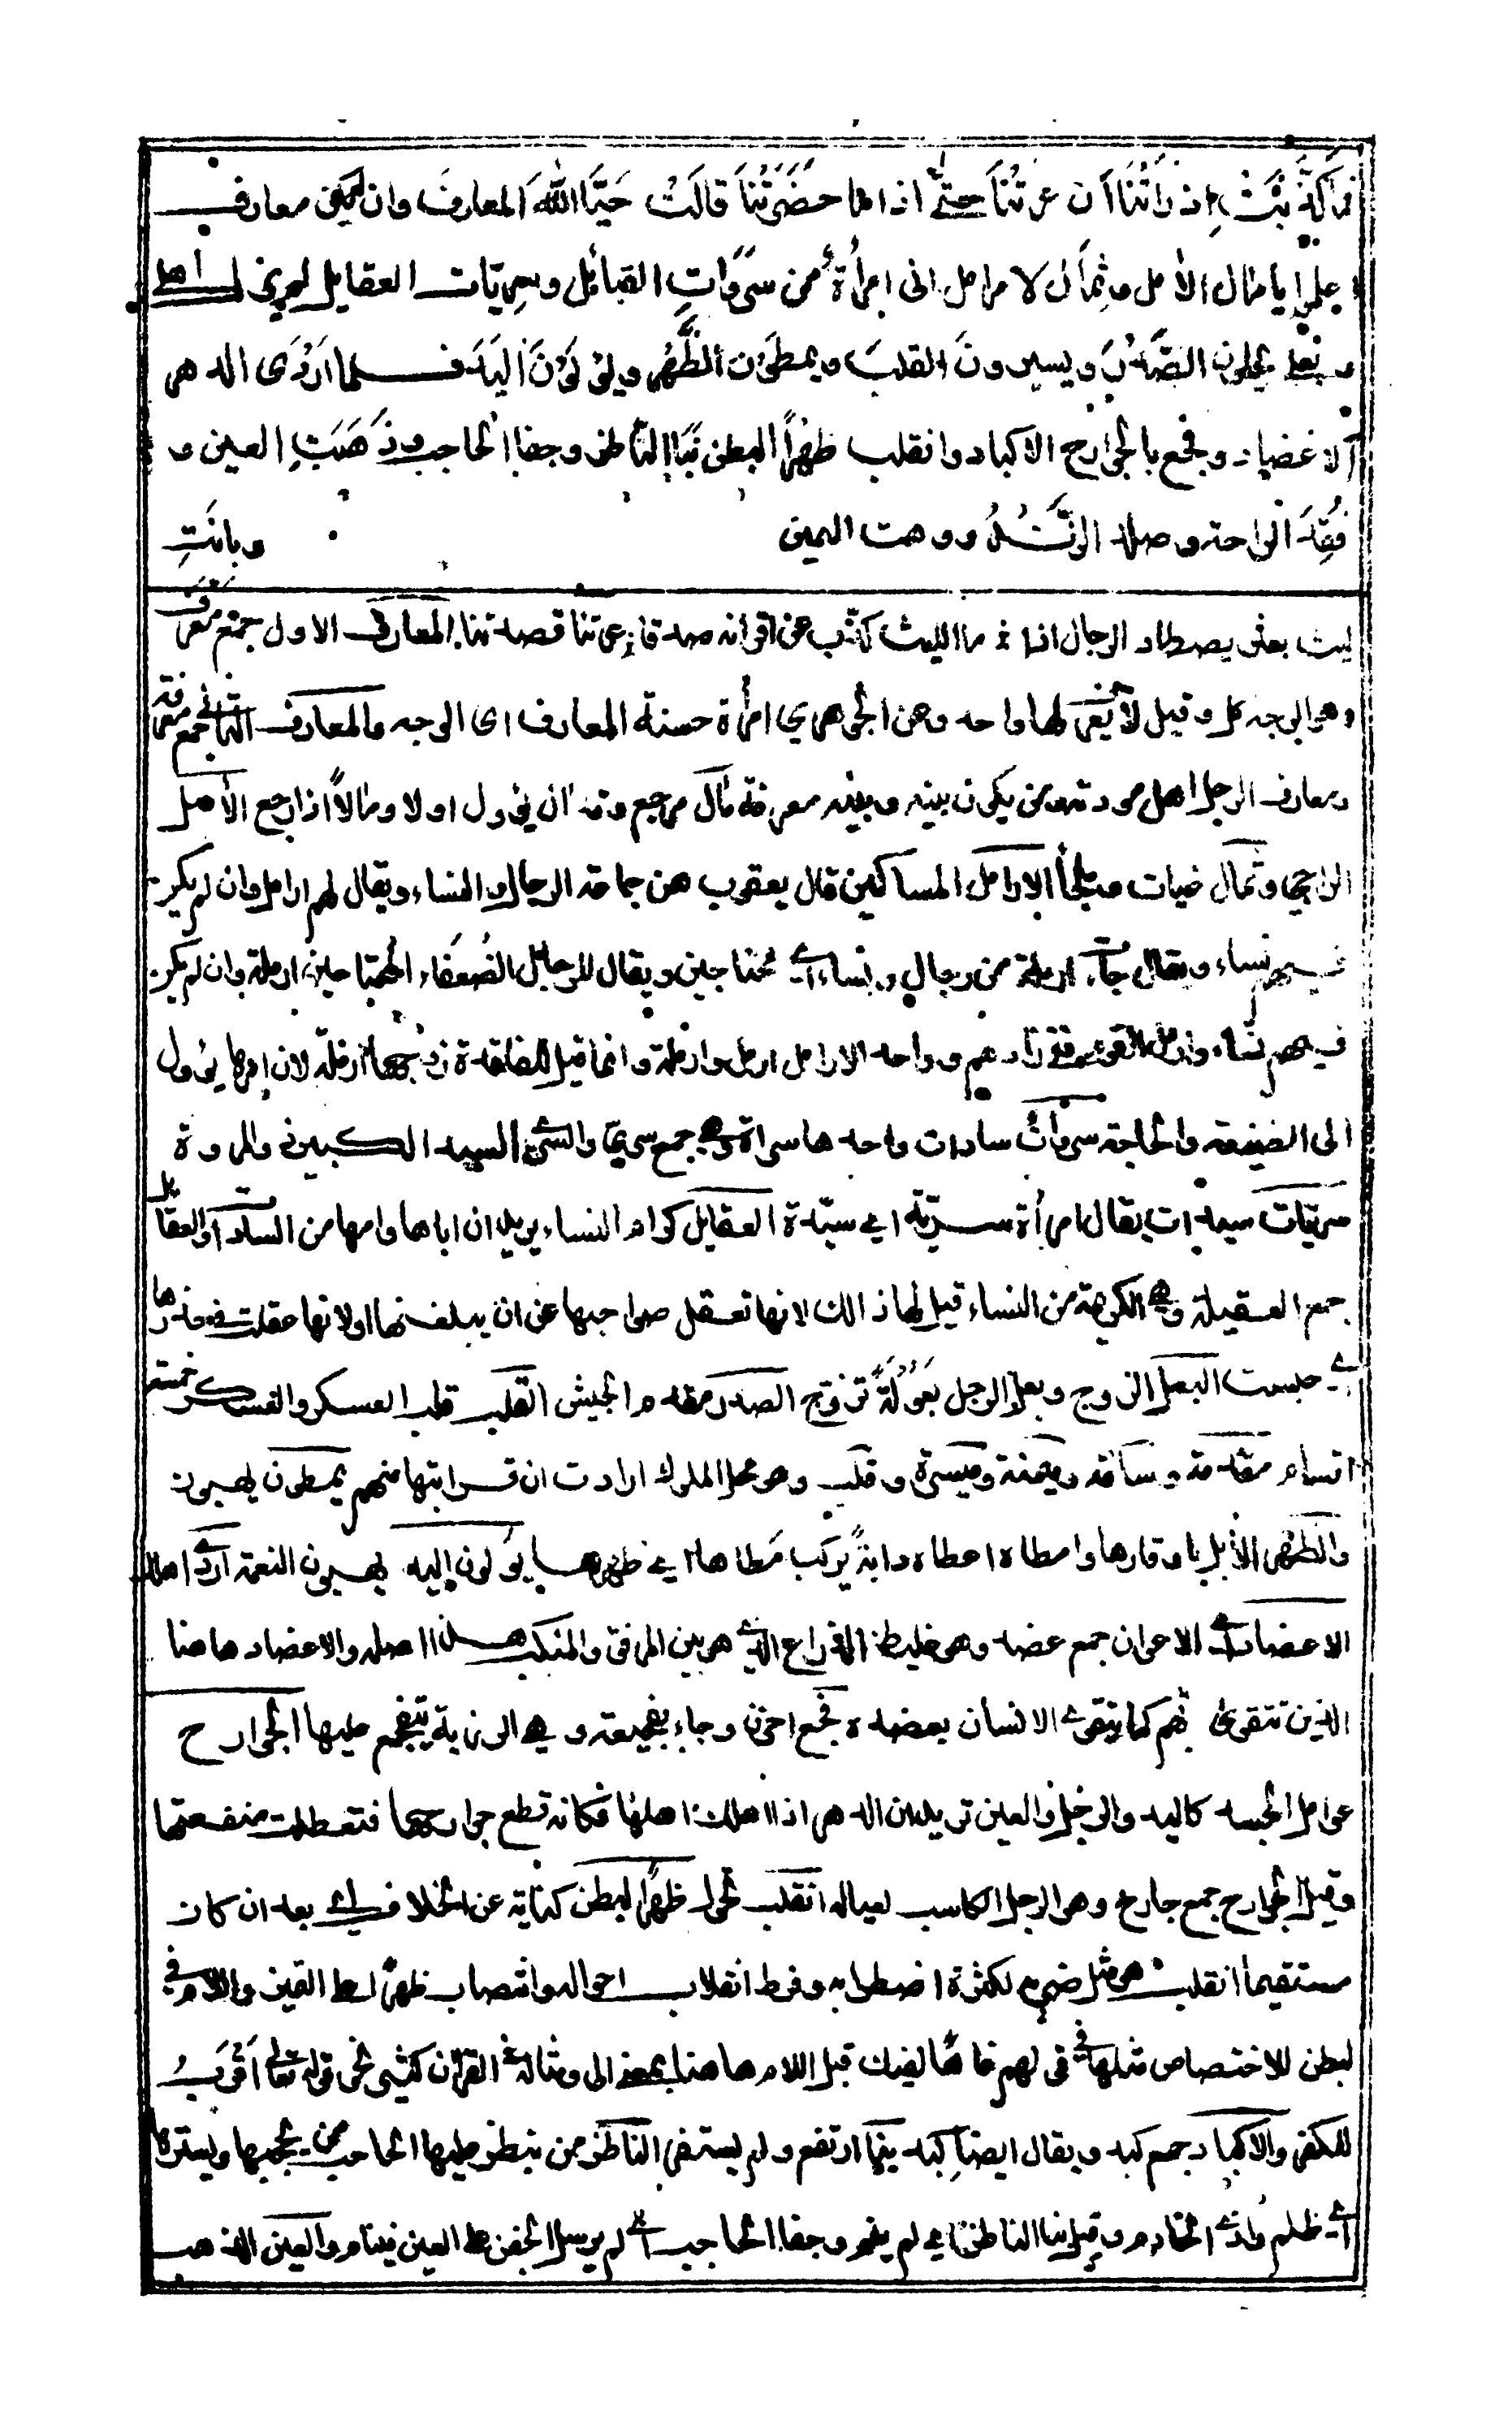 فما كذبت إذ رأتنا أن عرتنا حتى اذا ما حضرتنا قالت حيا الله المعارف وان لم يكن معارف
اعلموا يا مال الآمل وثمال الارامل انى امرأة من سروات القبائل وسريات العقايل لم يزل اهلي
وبعلي يحلون الصدر ويسيرون القلب ويمطون الظهر ويولون اليد فلما اردى الدهر
الاعضاد وفجع بالجوارح الاكباد وانقلب ظهرا لبطن نبا الناظر وجفا الحاجب وذهبت العين و
فقدت الراحة وصلد الزند ووهنت اليمين وبانت
ليث بعثر يصطاد الرجال اذا ما الليث كذب عن اقرانه صدقا عرتنا قصدتنا المعارف الاول جمع معرف
وهو الوجه كل وقيل لا يعرف لها واحد وعن الجوهري امرأة حسنة المعارف اى الوجه والمعارف الثاني جمع معرفة
ومعارف الرجل اهل مودته ومن يكون بينه وبينه معرفة مآل مرجع وقد آل يؤول اولا ومآلا اذا رجع الآمل
الراجي وثمال غياث وملجأ الارامل المساكين قال يعقوب هن جماعة الرجال والنساء ويقال لهم ارامل وان لم يكن
فيهم نساء ويقال جاء ارملة من رجال ونساء اى محتاجين ويقال للرجال الضعفاء المحتاجين ارملة وان لم يكن
فيهم نساء وارمل القوم فنى زادهم وواحد الارامل ارمل وارملة وانما قيل للفاقدة زوجها ارملة لان امرها يؤول
الى الضيعة والحاجة سروات سادات واحدها سراة وهى جمع سري والسرى السيد الكبير ذو المروءة
سريات سيدات يقال امرأة سرية اى سيدة العقايل كرام النساء يريد ان اباها وامها من السادة والعقايل
جمع العقيلة وهى الكريمة من النساء قيل لها ذالك لانها تعقل صواحبها عن ان يبلغنها او لانها عقلت فى خدرها
اى حبست البعل الزوج وبعل الرجل بعولة تزوج الصدر مقدم الجيش القلب قلب العسكر والعسكر خمسة
اقسام مقدمة وساقة وميمنة وميسرة وقلب وهو محل الملوك ارادت ان قرابتها منهم يمطون يهبون
والظهر الابل باوقارها وامطاه اعطاه دابة يركب مطاها اى ظهرها يولون اليد يهبون النعمة اردى اهلك
الاعضاد اى الاعوان جمع عضد وهو غليظ الذراع الذى هو بين المرفق والمنكب هذا اصله والاعضاد هاهنا
الذين تتقوى بهم كما يتقوى الانسان بعضده فجع احزن وجاء بفجيعة وهى الرزية يتفجع عليها الجوارح
عوامل الجسد كاليد والرجل والعين تريد ان الدهر اذا اهلك اهلها فكانه قطع جوارحها فتعطلت منفعتها
وقيل الجوارح جمع جارح وهو الرجل الكاسب لعياله انقلب تحول ظهرا لبطن كناية عن الخلاف اى بعد ان كان
مستقيما انقلب هو مثل ضرب لكثرة اضطرابه وفرط انقلاب احواله وانتصاب ظهرا على التمييز واللام فى
لبطن للاختصاص مثلها فى قولهم خاصا لفيك قيل اللام هاهنا بمعنى الى ومثاله فى القرآن كثير نحو قوله تعالى اقرب
للكفر والاكباد جمع كبد ويقال ايضا كبد نبا ارتفع ولم يستقر الناظر من ينظر عليها الحاجب من يحجبها ويسترها
اى ظلم واذى الخادم وقيل نبا الناظر اى لم ينم وجفا الحاجب اى لم يرسل الجفن على العين فينام والعين الذهب